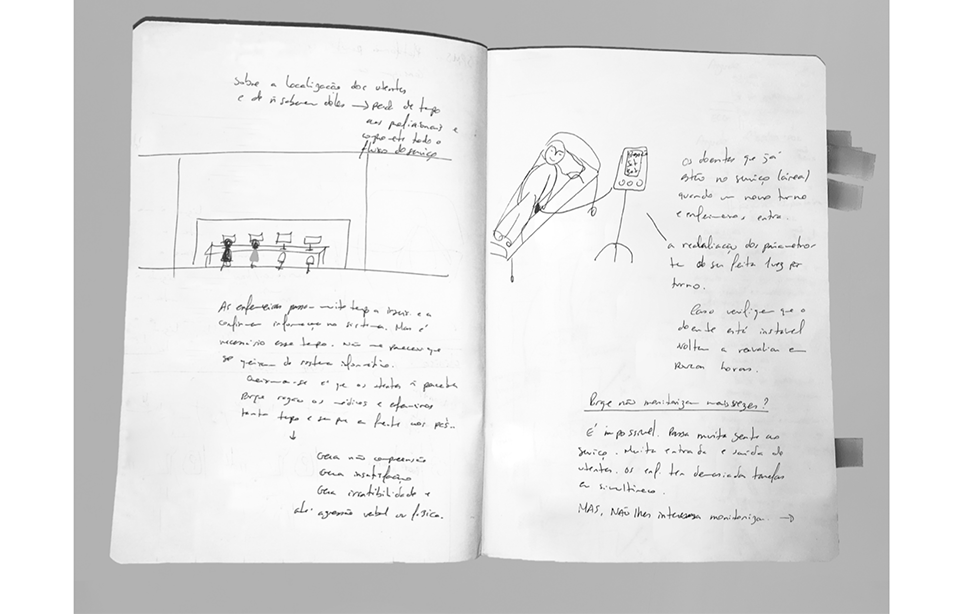 sobre a localização dos utentes
e de ñ saberem deles → perde de tempo
aos profissionais e
compromete todo o
fluxo do serviço
As enfermeiras passam muito tempo a inserir e a
confirmar informação no sistema. Mas é
necessário esse tempo. Não me pareceu que
se queixam do sistema informático.
Queixam-se é que os utentes ñ percebem
porque razão os médicos e enfermeiros
tanto tempo e sempre à frente
↓
Gera não compreensão
Gera insatisfação
Gera irratibilidade e
até agressão verbal ou física.
Os doentes que já
estão no serviço (área)
quando um novo turno
e enfermeiros entra.
a reavaliação dos parâmetros
tem de ser feita 1 vez por
turno.
Caso verifiquem que o
doente está instável
voltam a reavaliar em
poucas horas.
Porque não monitorizam mais vezes?
É impossível. Passa muita gente no
serviço. Muita entrada e saída de
utentes. Os enf. tem demasiadas tarefas
em simultâneo.
MAS, NÃO lhes interessa monitorizar. →